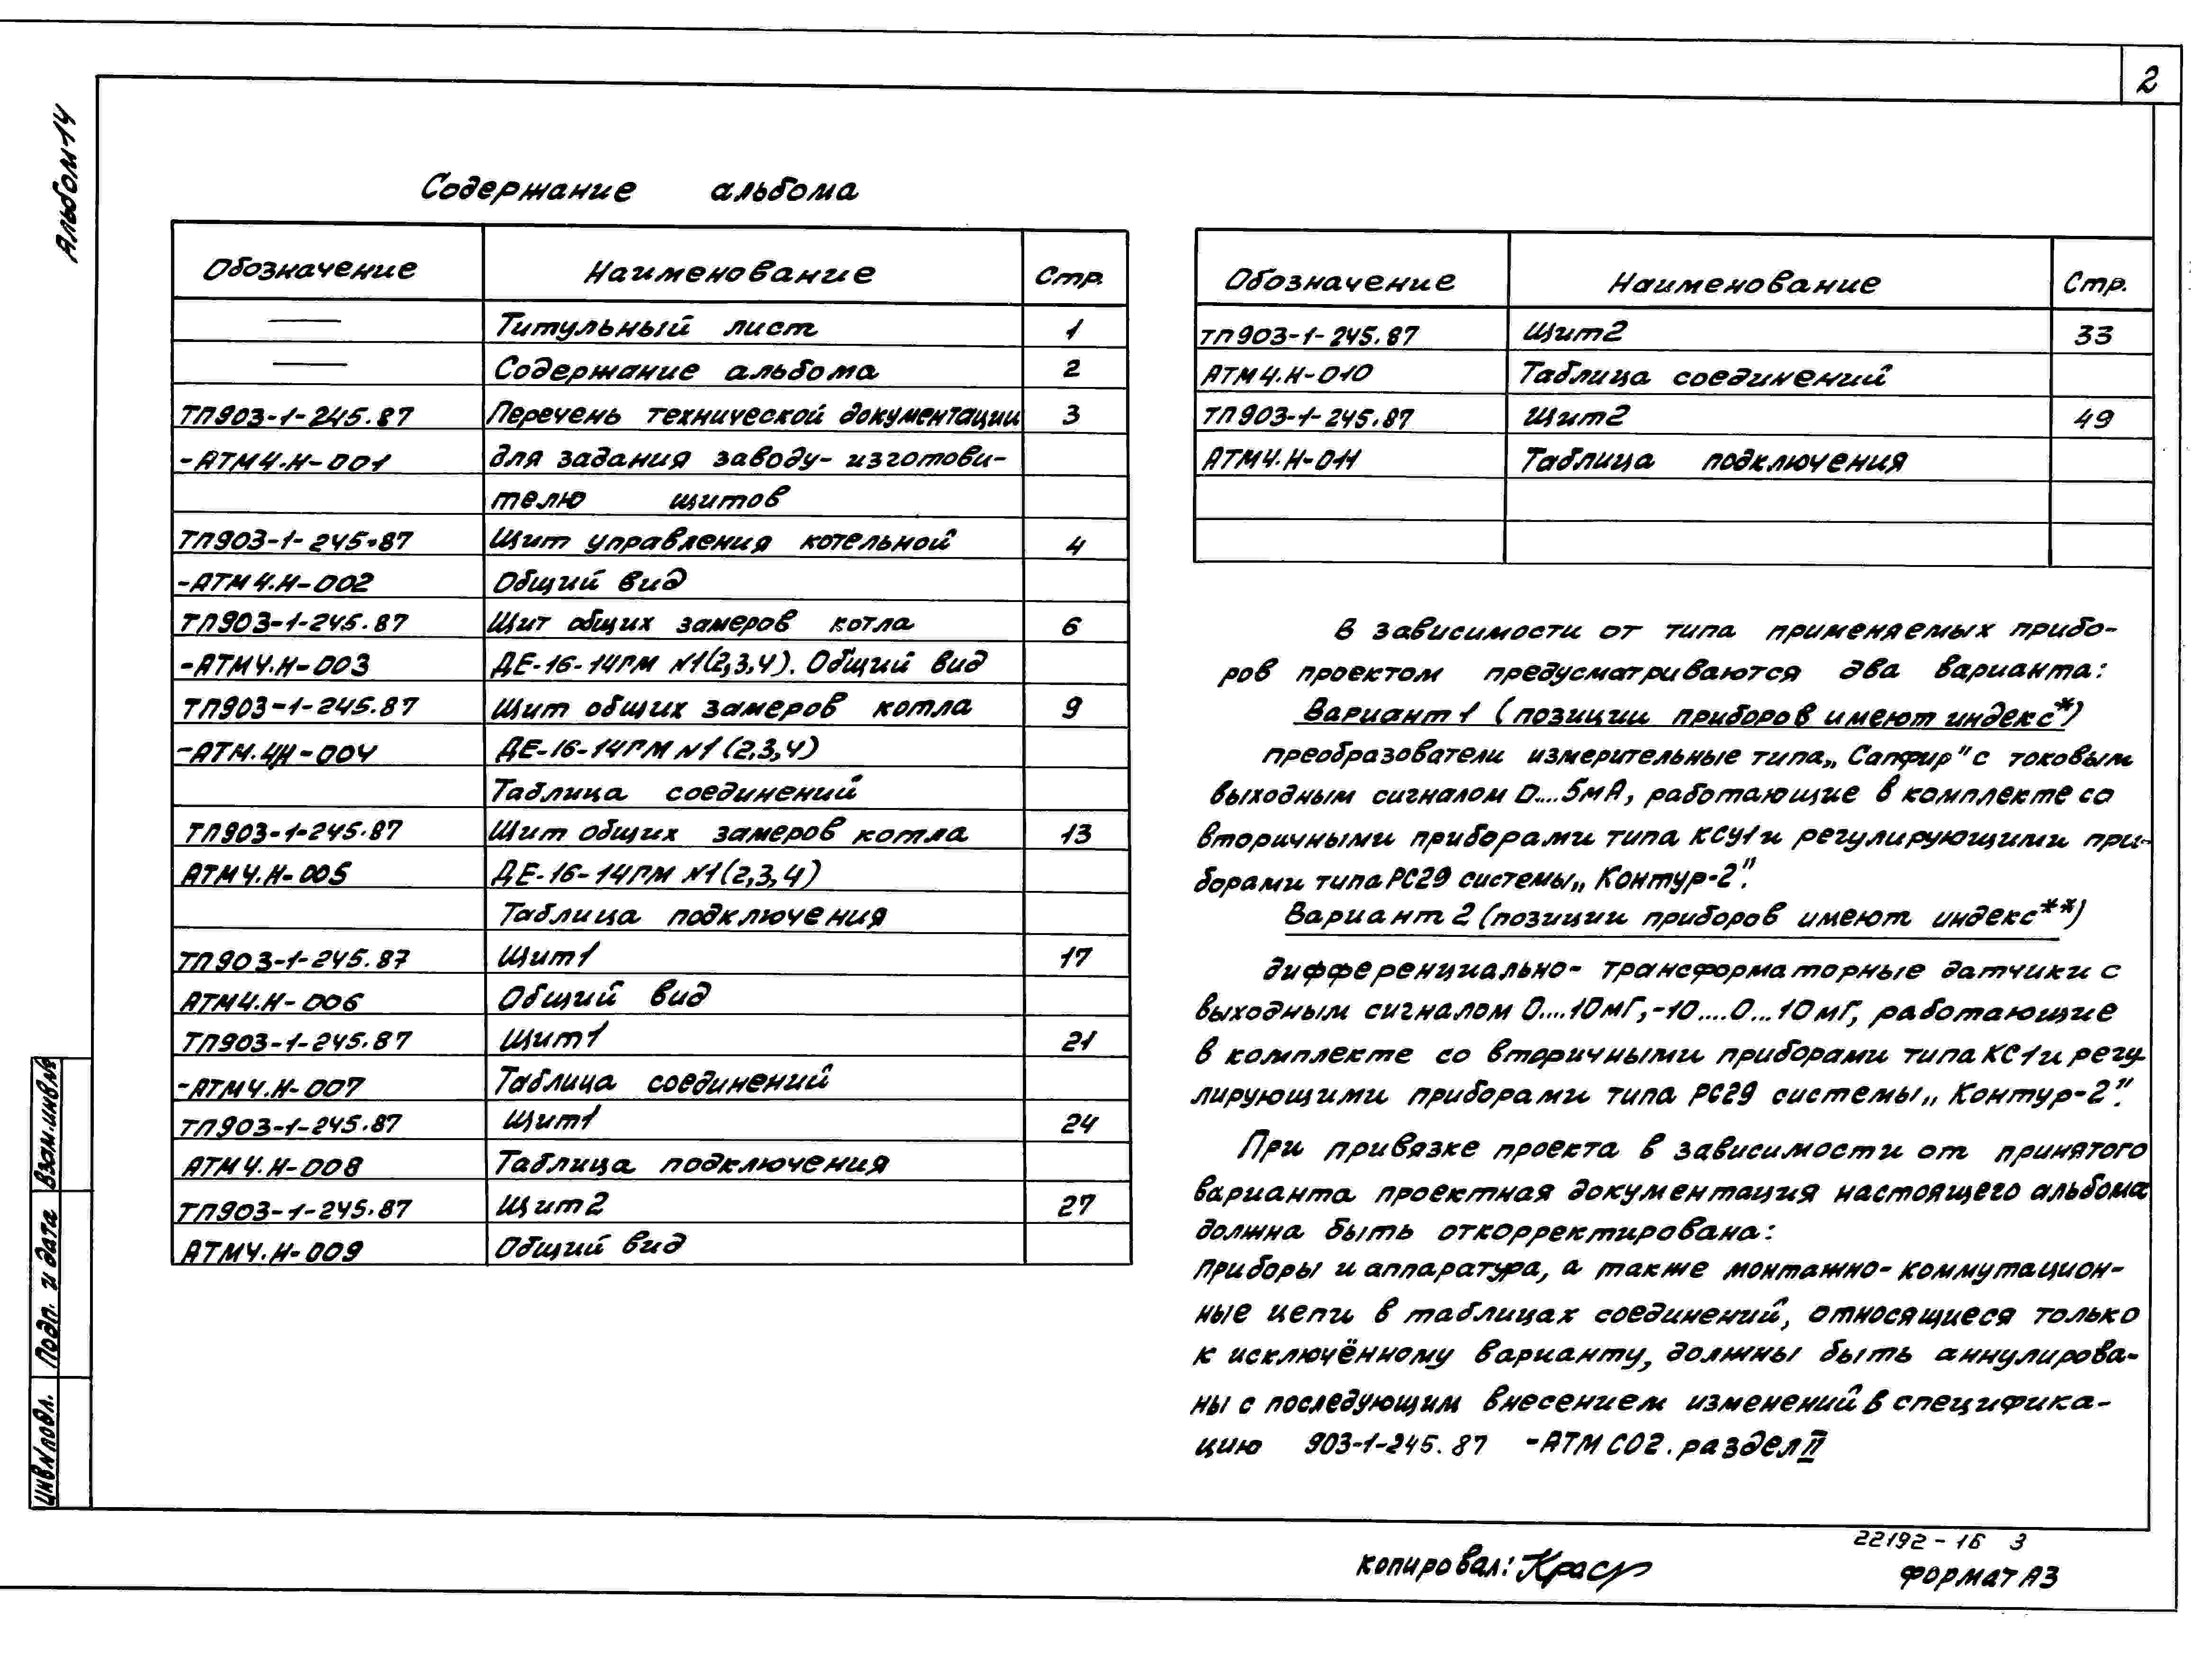 2
Альбом 14
Содержание альбома
Обозначение Наименование Стр.
— Титульный лист 1
— Содержание альбома 2
ТП903-1-245.87 Перечень технической документации 3
-АТМ4.Н-001 для задания заводу-изготови-
телю щитов
ТП903-1-245.87 Щит управления котельной 4
-АТМ4.Н-002 Общий вид
ТП903-1-245.87 Щит общих замеров котла 6
-АТМ4.Н-003 ДЕ-16-14ГМ №1(2,3,4). Общий вид
ТП903-1-245.87 Щит общих замеров котла 9
-АТМ.4Н-004 ДЕ-16-14ГМ №1(2,3,4)
Таблица соединений
ТП903-1-245.87 Щит общих замеров котла 13
АТМ4.Н-005 ДЕ-16-14ГМ №1(2,3,4)
Таблица подключения
ТП903-1-245.87 Щит1 17
АТМ4.Н-006 Общий вид
ТП903-1-245.87 Щит1 21
-АТМ4.Н-007 Таблица соединений
ТП903-1-245.87 Щит1 24
АТМ4.Н-008 Таблица подключения
ТП903-1-245.87 Щит2 27
АТМ4.Н-009 Общий вид
Обозначение Наименование Стр.
ТП903-1-245.87 Щит2 33
АТМ4.Н-010 Таблица соединений
ТП903-1-245.87 Щит2 49
АТМ4.Н-011 Таблица подключения
В зависимости от типа применяемых прибо-
ров проектом предусматриваются два варианта:
Вариант 1 (позиции приборов имеют индекс*)
преобразователи измерительные типа „Сапфир" с токовым
выходным сигналом 0....5мА, работающие в комплекте со
вторичными приборами типа КСУ1 и регулирующими при-
борами типа РС29 системы „Контур-2".
Вариант 2 (позиции приборов имеют индекс**)
дифференциально-трансформаторные датчики с
выходным сигналом 0....10мГ, -10....0...10мГ, работающие
в комплекте со вторичными приборами типа КС1 и регу
лирующими приборами типа РС29 системы „Контур-2".
При привязке проекта в зависимости от принятого
варианта проектная документация настоящего альбома
должна быть откорректирована:
приборы и аппаратура, а также монтажно-коммутацион-
ные цепи в таблицах соединений, относящиеся только
к исключённому варианту, должны быть аннулирова-
ны с последующим внесением изменений в специфика-
цию 903-1-245.87 -АТМ СО2. раздел II
Взам.инв№
Подп. и дата
Инв№подл.
22192-16 3
копировал: Крас
Формат А3